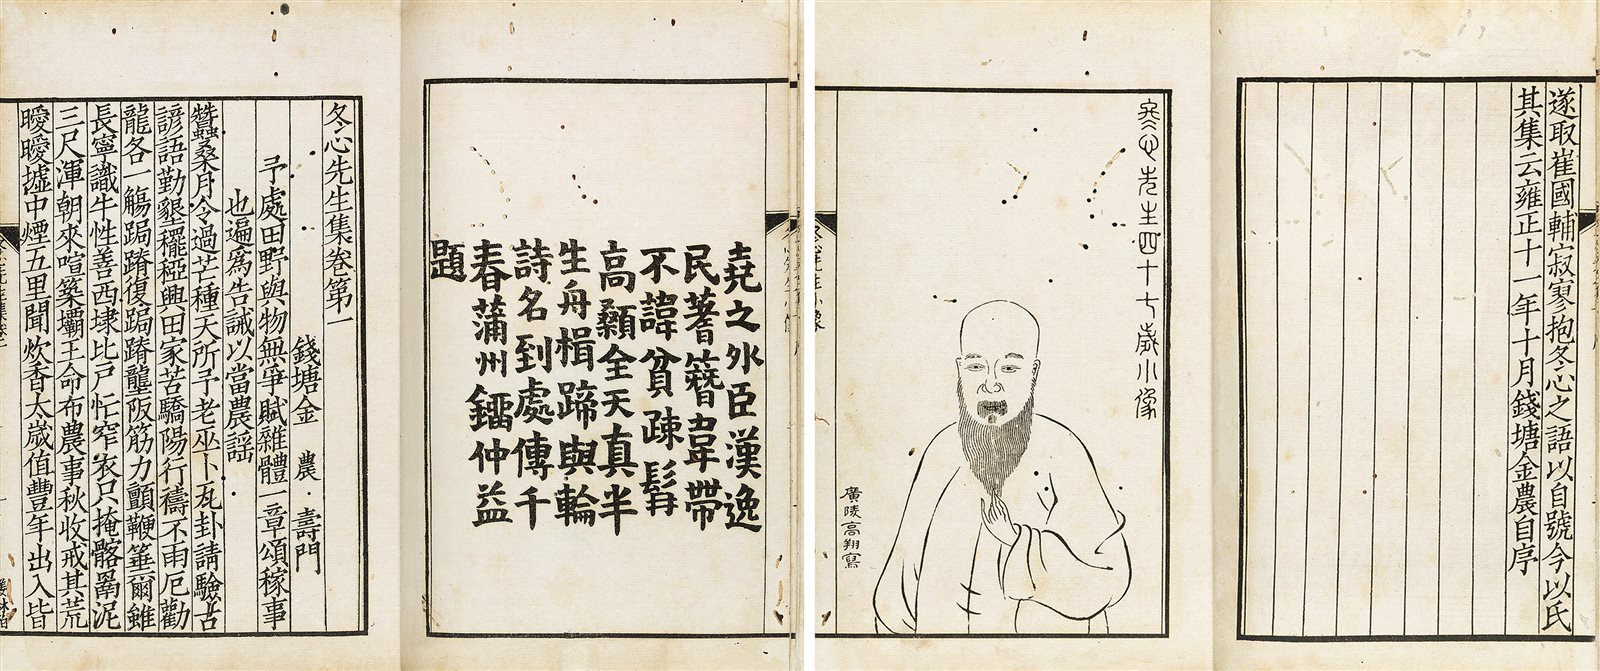 遂取崔國輔寂寥抱冬心之語以自號今以氏
其集云雍正十一年十月錢塘金農自序
冬心先生四十七歲小像
廣陵高翔寫
堯之外臣漢逸
民蓍簪韋帶
不諱貧疎髯
高顙全天真半
生舟楫蹄與輪
詩名到處傳千
春蒲州鐂仲益
題
冬心先生集卷第一
錢塘金 農 壽門
予處田野與物無爭賦雜體一章頌稼事
也遍爲告誡以當農謡
蠶桑月令過芒種天所予老巫卜瓦卦請驗古
諺語勤墾穲稏興田家苦驕陽行禱不雨厄勸
龍各一觴跼蹐復跼蹐壟阪筋力顫鞭箠爾雖
長寧識牛性善西埭比戶忙窄衣只掩髂罱泥
三尺渾朝來喧築壩王命布農事秋收戒其荒
曖曖墟中煙五里聞炊香太歲值豐年出入皆